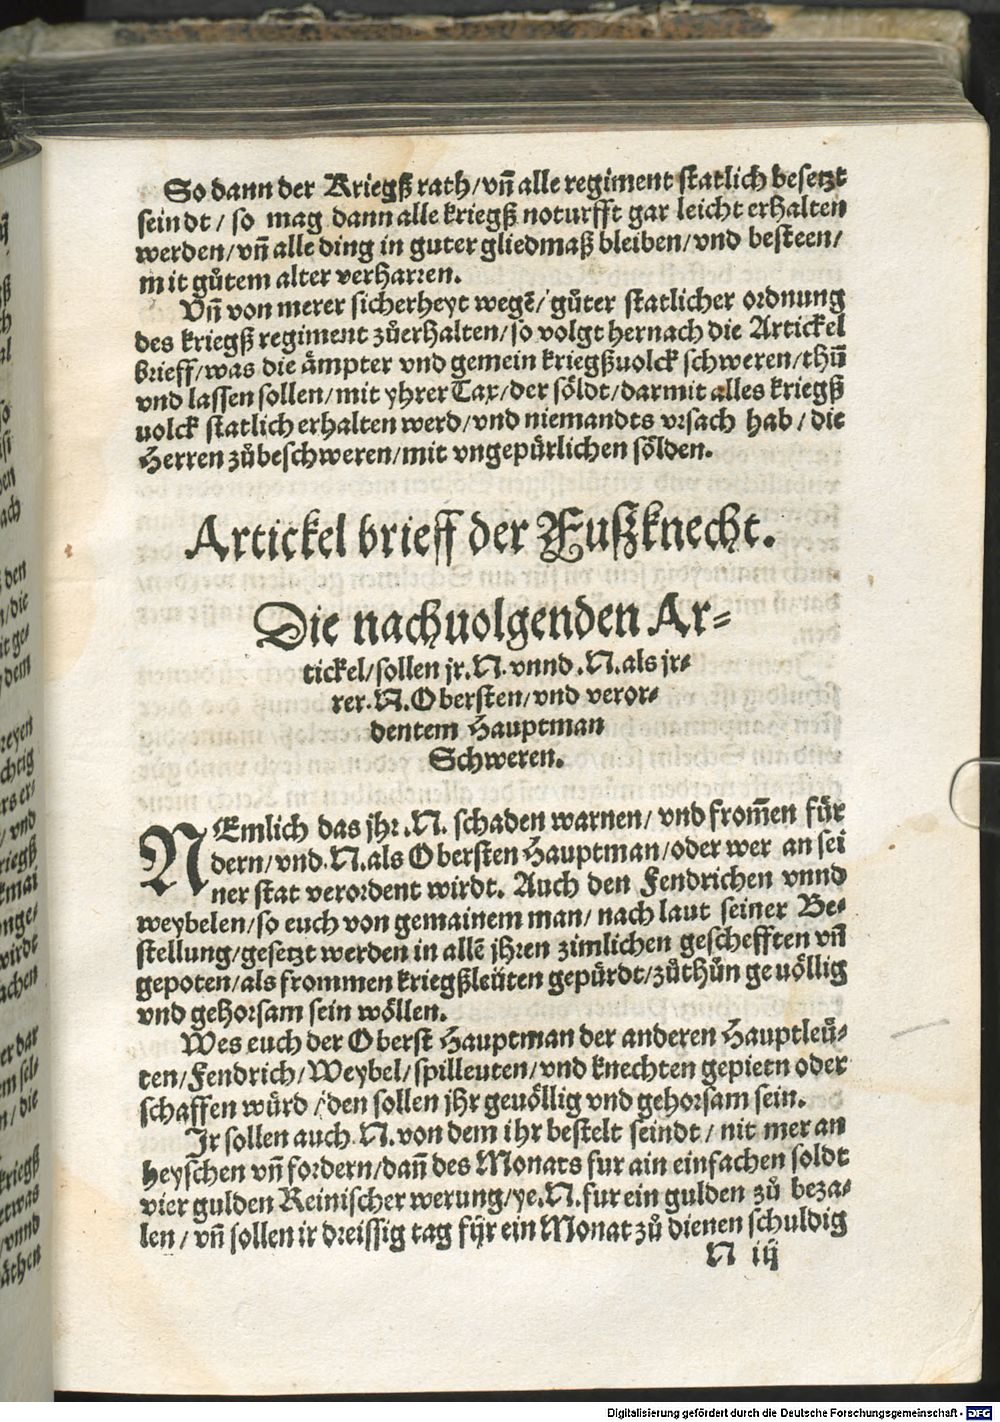 So dann der Kriegß rath/vñ alle regiment statlich besetzt
seindt/so mag dann alle kriegß noturfft gar leicht erhalten
werden/vñ alle ding in guter gliedmaß bleiben/vnd besteen/
mit gůtem alter verharren.
Vñ von merer sicherheyt wegẽ/gůter statlicher ordnung
des kriegß regiment zůerhalten/so volgt hernach die Artickel
brieff/was die ämpter vnd gemein kriegßuolck schweren/thů̃
vnd lassen sollen/mit yhrer Tax/der söldt/darmit alles kriegß
uolck statlich erhalten werd/vnd niemandts vrsach hab/die
Herren zůbeschweren/mit vngepürlichen sölden.
Artickel brieff der Fußknecht.
Die nachuolgenden Ar=
tickel/sollen jr.N.vnnd.N.als jr=
rer.N.Obersten/vnd veror=
dentem Hauptman
Schweren.
NEmlich das jhr.N.schaden warnen/vnd from̃en für
dern/vnd.N.als Obersten Hauptman/oder wer an sei
ner stat verordent wirdt. Auch den Fendrichen vnnd
weybelen/so euch von gemainem man/nach laut seiner Be=
stellung/gesetzt werden in allẽ jhren zimlichen geschefften vñ
gepoten/als frommen kriegßleüten gepürdt/zůthůn geuöllig
vnd gehorsam sein wöllen.
Wes euch der Oberst Hauptman der anderen Hauptleü=
ten/Fendrich/Weybel/spilleuten/vnd knechten gepietn oder
schaffen würd/den sollen jhr geuöllig vnd gehorsam sein.
Jr sollen auch.N.von dem ihr bestelt seindt/nit mer an
heyschen vñ fordern/dañ des Monats fur ain einfachen soldt
vier gulden Reinischer werung/ye.N.fur ein gulden zů beza=
len/vñ sollen ir dreissig tag für ein Monat zů dienen schuldig
N iij
Digitalisierung gefördert durch die Deutsche Forschungsgemeinschaft - DFG